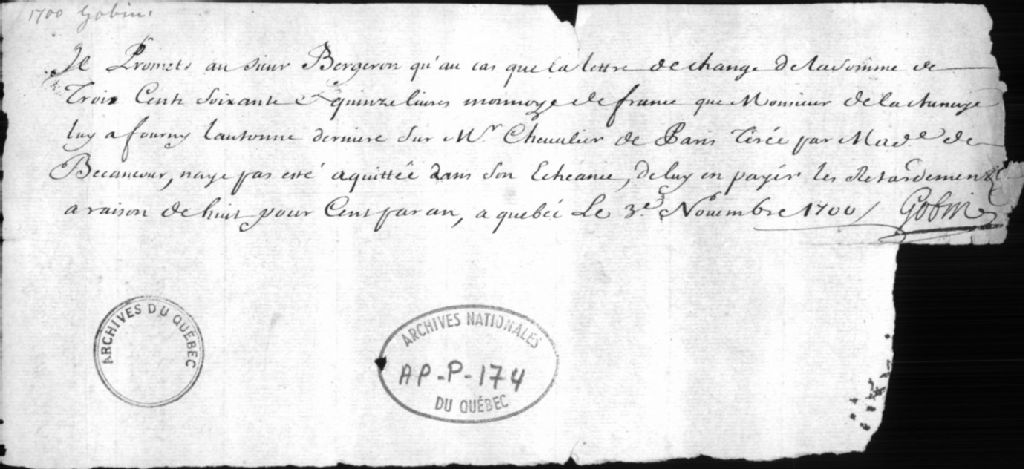 1700 Gobin.
Je Promets au Sieur Bergeron qu'au cas que la lettre de change de la Somme de
Trois Cents Soixante & quinze livres monnoye de france que Monsieur de la chenaye
luy a fourny lautonne derniere Sur Mr. Chevalier de Paris Tirée par Made. de
Becancour, naye pas esté aquittée dans Son Echeance, de luy en payer les Retardements
a raison de huit pour Cent par an, a quebec Le 3e. Novembre 1700 / Gobin
ARCHIVES DU QUÉBEC
ARCHIVES NATIONALES
AP-P-174
DU QUÉBEC